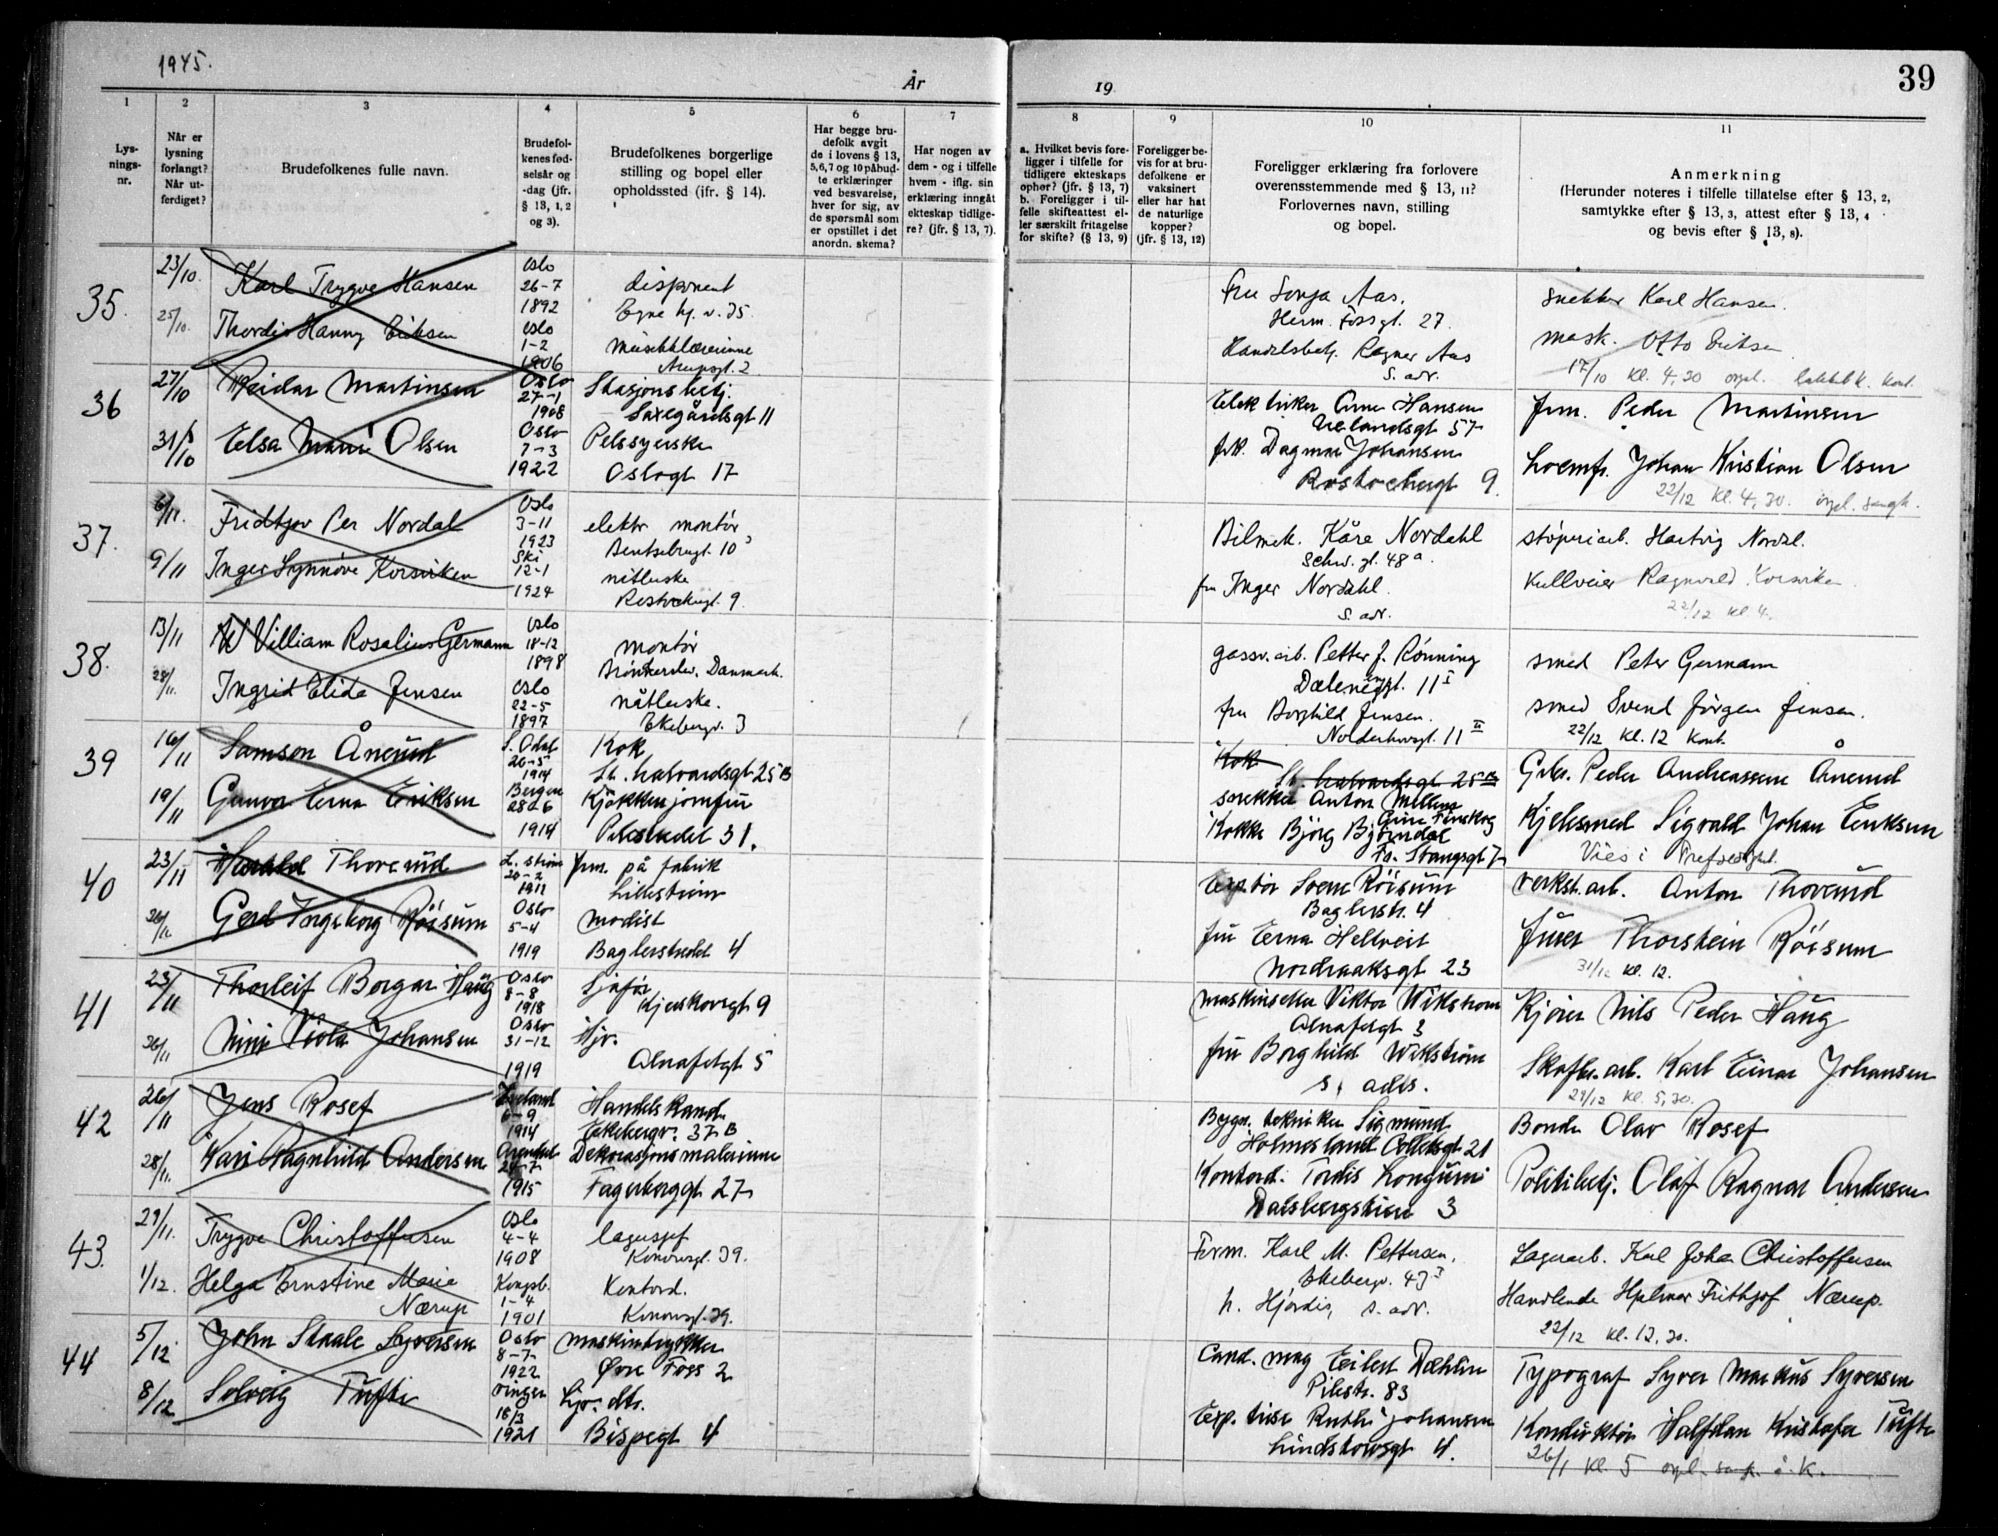 1945.
År
19
39
1
2
3
4
5
6
7
8
9
10
11
Lys-
nings-
nr.
Når er
lysning
forlangt?
Når ut-
ferdiget?
Brudefolkenes fulle navn.
Brudefol-
kenes fød-
selsår og
-dag (jfr.
§ 13, 1, 2
og 3).
Brudefolkenes borgerlige
stilling og bopel eller
opholdssted (jfr. § 14).
Har begge bru-
defolk avgit
de i lovens § 13,
5,6,7 og 10 påbud-
te erklæringer
ved besvarelse,
hver for sig, av
de spørsmål som
er opstillet i det
anordn. skema?
Har nogen av
dem - og i tilfelle
hvem - iflg. sin
erklæring inngåt
ekteskap tidlige-
re? (jfr. § 13, 7).
a. Hvilket bevis fore-
ligger i tilfelle for
tidligere ekteskaps
ophør? (jfr. § 13, 7)
b. Foreligger i til-
felle skifteattest el-
ler særskilt fritagelse
for skifte? (§ 13, 9)
Foreligger be-
vis for at bru-
defolkene er
vaksinert
eller har hat
de naturlige
kopper?
(jfr. § 13, 12)
Foreligger erklæring fra forlovere
overensstemmende med § 13, 11?
Forlovernes navn, stilling
og bopel.
Anmerkning
(Herunder noteres i tilfelle tillatelse efter § 13, 2,
samtykke efter § 13, 3, attest efter § 13, 4
og bevis efter § 13, 8).
35.
23/10.
Karl Trygve Hansen
Oslo
26-7
1892
disponent
Egne hj. v. 35.
Fru Sonja Aas.
Herm. Fossgt. 27.
snekker Karl Hansen.
25/10.
Thordis Hanny Eriksen
Oslo
1-2
1906
Arupsgt. 2
Handelsbetj. Ragnar Aas
s. adr.
mask. Otto Eriksen
17/10 kl. 4,30
36
27/10
Reidar Martinsen
Oslo
27-1
1908
Stasjonsbetj.
Saxegårdsgt 11
Elektriker Arne Hansen
Uelandsgt 57
frm. Peder Martinsen
31/10
Elsa Marie Olsen
Oslo
7-3
1922
Pelssyerske
Oslogt 17
frk. Dagmar Johansen
Rostockergt 9.
Johan Kristian Olsen
22/12 kl. 4,30.
37.
6/11.
Fridtjov Per Nordal
Oslo
3-11
1923
elektr montør
Bentsebrugt. 10
Bilmek. Kåre Nordahl
Schw. gt. 48a.
støperiarb. Hartvig Nordal.
9/11
Inger Synnøve Korsviken
Ski
12-1
1924
Rostockergt. 9.
fru Inger Nordahl.
s. adr.
Ragnvald Korsviken
22/12 kl 4.
38.
13/11
William Rosalius Germann
Oslo
18-12
1898
montør
Brønderslev, Danmark.
gassv. arb. Petter J. Rønning
Dælenenggt. 11 I
smed Peter Germann
28/11.
Ingrid Elida Jensen
Oslo
22-5
1897
nåtlerske.
Ekebergv. 3
fru Borghild Jensen.
Norderhovsgt. 11 II
smed Svend Jörgen Jensen.
22/12 kl. 12 kont.
39
16/11
Samson Ånerud
S. Odal
20-5
1914
Kok
St. halvardsgt 25 B
Kok
St. halvardsgt 25 B
snekker Anton
Gbr. Peder Andreassen Ånerud
19/11
Gunvor Erna Eriksen
Bergen
28-6
1914
Kjøkkenjomfru
Pilestredet 31.
Kokke Bjørg Bjørndal
Fr. Stangsgt 7
Kjelesmed Sigvald Johan Eriksen
Vies i
40
23/11
Harald Thorerud
L. strøm
20-2
1911
frm. på fabrik
Lillestrøm
Svein Röisum
Baglerstr. 4
verkst. arb. Anton Thorerud
26/11.
Gerd Ingeborg Röisum
Oslo
5-4
1919
modist
Baglerstredet 4
fru Erna Hellveit
Nordraaksgt 23
Thorstein Röisum
31/12 kl. 12.
41
23/11
Thorleif Borgar Haug
Oslo
8-8
1918
Sjåför
Kjerskovsgt 9
Viktor Wikstrøm
Alnafetgt 3
Kjører Nils Peder Haug
26/11
Nini Viola Johansen
Oslo
31-12
1919
Hjv.
Alnafetgt 5
fru Borghild Wikstrøm
s. adr.
Skofbr. arb. Karl Einar Johansen
29/12 kl. 5,30.
42
26/11
Jens Rosef
6-9
1914
Handelskand.
Ekebergv. 37 B
Bygn. tekniker Sigmund
Holmesland Collettsgt 21
Bonde Olav Rosef
28/11.
Kari Ragnhild Andersen
Arendal
24-7
1915
Dekorasjonsmalerinne
Fagerborggt 27
Kontord. Tordis Longum
Dalsbergstien 3
Politibetj. Olaf Ragnar Andersen
43.
29/11.
Trygve Christoffersen
Oslo
4-4
1908
lagersjef
Konowsgt. 39.
Form. Karl M. Pettersen.
Ekebergv. 43 I
Lagerarb. Karl Johan Christoffersen
1/12.
Helga Ernstine Marie
Nærup
Kongsb.
1-4
1901
Kontord.
Konowsgt. 39.
h. Hjørdis, s. adr.
Handlende Hjalmar Frithjof Nærup.
22/12 kl. 12,30.
44
5/12
John Staale Syversen
Oslo
8-7
1922
maskintrykker
Øvre Foss 2
Cand. mag Eilert Dæhlin
Pilestr. 83
Typograf Syver Markus Syversen
8/12
Solveig Tufte
Vinger
18/3
1921
hjv. dtr.
Bispegt 4
Exp. trise Ruth Johansen
Lindstowsgt 4.
Konduktør Halfdan Kristofer Tufte
26/1 kl. 5